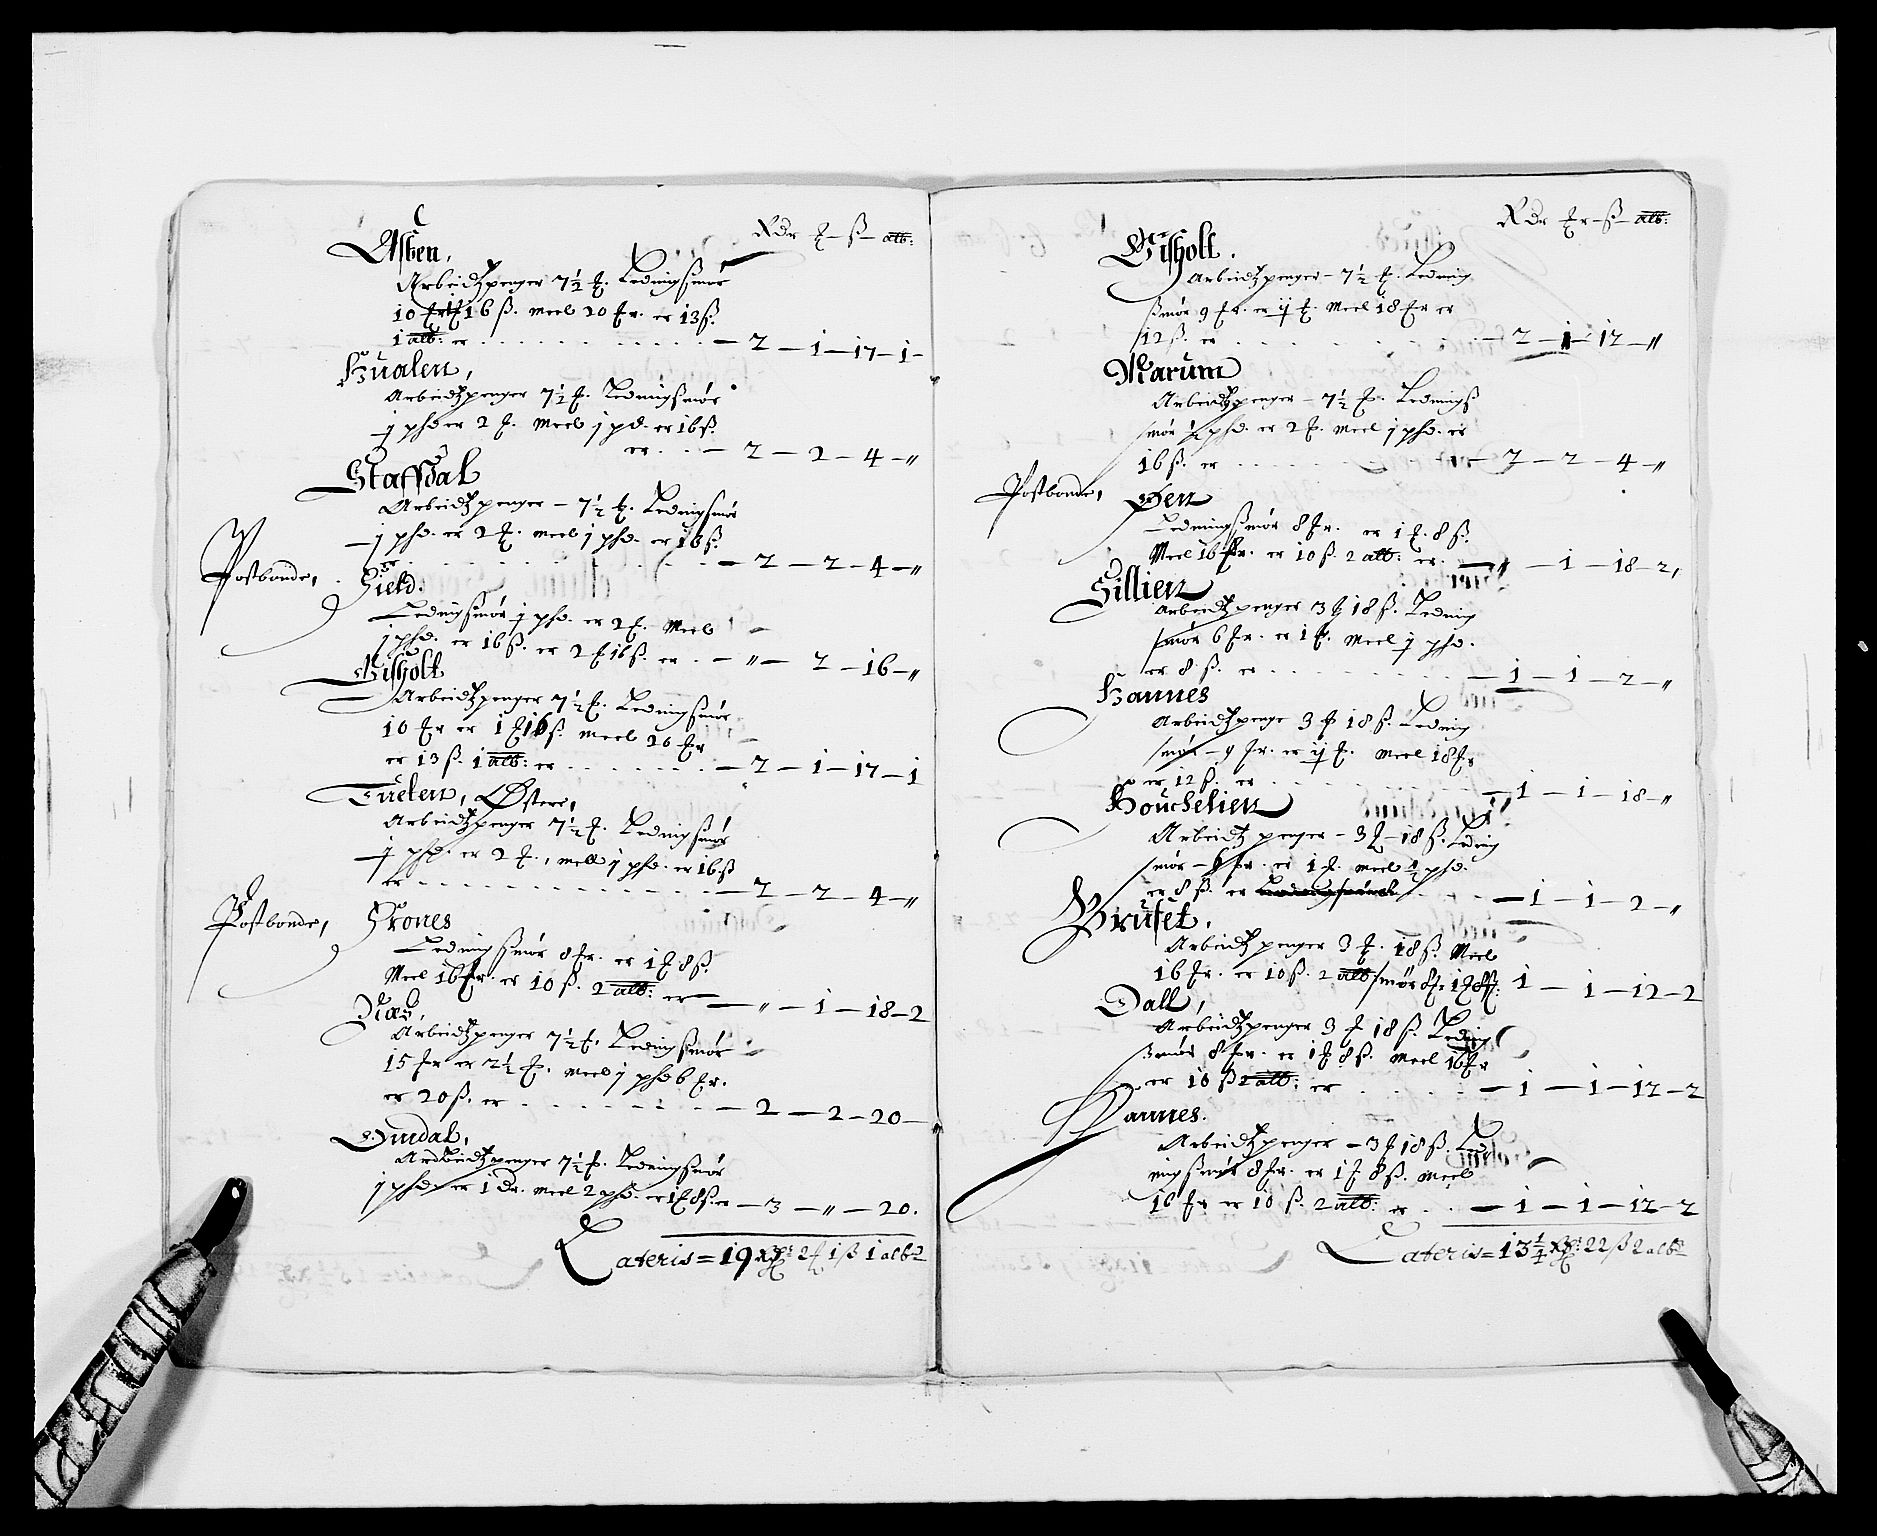 Rdr – ƶ – ß – alb:
Asten,
Arbeidtzpenger 7½ ƶ. Ledingsmør
10 ƶ 16 ß. Meel 20 ƶr. er 13 ß.
1 alb: er . . . – 2 – 1 – 17 – 1 –
Hualen,
Arbeidtzpenger 7½ ƶ. Ledingsmør
j phd er 2 ƶ. Meel j pd. er 16 ß.
er . . – 2 – 2 – 4 – „
Staffdal
Arbeidtzpenger – 7½ ƶ. Ledingsmør
j phd. er 2 ƶ. Meel j phd. er 16 ß.
er . . . – 2 – 2 – 4 – „
Postbonde, Gield.
Ledingsmør j phd. er 2 ƶ. Meel
j phd. er 16 ß. er 2 ƶ 16 ß. er . – „ – 2 – 16 – „
Gisholt
Arbeidtzpenger 7½ ƶ. Ledingsmør
10 ƶr er 1 ƶ 16 ß. Meel 20 ƶr
er 13 ß. 1 alb: er . . . – 2 – 1 – 17 – 1
Tueten, Østere,
Arbeidtzpenger 7½ ƶ. Ledingsmør
j phd. er 2 ƶ., Mell j phd. er 16 ß
er . . . – 2 – 2 – 4 – „
Postbonde, Skones
Ledingsmør 8 ƶr. er 1 ƶ 8 ß.
Meel 16 ƶr. er 10 ß. 2 alb: er – „ – 1 – 18 – 2
Næs,
Arbeidtzpenger 7½ ƶ, Ledingsmør
15 ƶr er 2½ ƶ. Meel j phd 6 ƶr.
er 20 ß. er . . . – 2 – 2 – 20 – „
Omdal,
Ardbeidtzpenger 7½ ƶ. Ledingsmør
j phd. er 1 Dr. Meel 2 phd. er 1 ƶ 8 ß. er – 3 – „ – 20.
Lateris = 19 Rdr: 2 ƶ 1 ß 1 alb:
Rdr ƶr – ß – alb:
Gisholt.
Arbeidtzpenger – 7½ ƶ. Leding
smør 9 ƶr. er ij ƶ. Meel 18 ƶr er
12 ß. er . . . – 2 – 1 – 12 – „
Marum
Arbeidtzpenger – 7½ ƶ. Ledings
mør ½ phd. er 2 ƶ. Meel j phd. er
16 ß. er . . . – 2 – 2 – 4 – „
Postbonde, Øen
Ledningsmør 8 ƶr. er 1 ƶ. 8 ß.
Meel 16 ƶr. er 10 ß. 2 alb: er. – „ – 1 – 18 – 2,
Sillien
Arbeidtzpenger 3 ƶ 18 ß. Leding
smør 6 ƶr. er 1 ƶ. Meel ½ phd.
er 8 ß. er . . . – 1 – 1 – 2 – „
Hannes
Arbeidtzpenge 3 ƶ 18 ß. Leding
smør – 9 ƶr. er ij ƶ. Meel 18 ƶr
er 12 ß. er . . . – 1 – 1 – 18 – „
Houchelien
Arbeidtz penger – 3 ƶ – 18 ß. Leding
smør – 6 ƶr. er 1 ƶ. Meel ½ phd.
er 8 ß. er . . . – 1 – 1 – 2 – „
Bruset.
Arbeidtz penger 3 ƶ. 18 ß. Meel
16 ƶr. er 10 ß. 2 alb smør 8 ƶr 1 ƶ 8 ß: 1 – 1 – 12 – 2
Dall,
Arbeidtzpenger 3 ƶ 18 ß. Leding
smør 8 ƶr. er 1 ƶ 8 ß. Meel 16 ƶr
er 10 ß 2 alb: er . . . – 1 – 1 – 12 – 2
Hannes.
Arbeidtzpenger – 3 ƶ 18 ß. Led
ingsmør 8 ƶr. er 1 ƶ 8 ß. Meel
16 ƶr er 10 ß. 2 alb: er . . – 1 – 1 – 12 – 2
Lateris = 13¼ Rdr: 22 ß 2 alb: